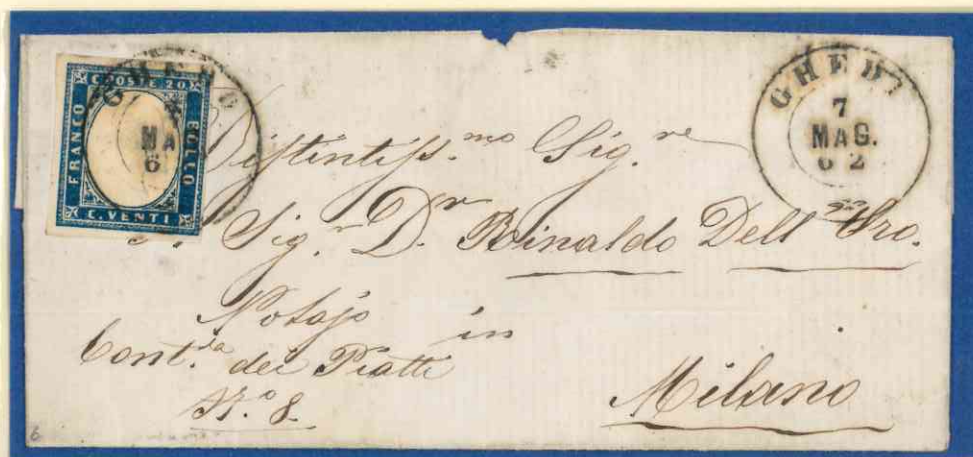 C. POSTE 20
FRANCO
BOLLO
C. VENTI
GHEDI
MA
6
GHEDI
7
MAG.
62
Distintiss.mo Sig.re
Sig.r D.r Rinaldo Dell'Oro.
Notajo in
Cont.da dei Piatti
N.o 8.
Milano
6